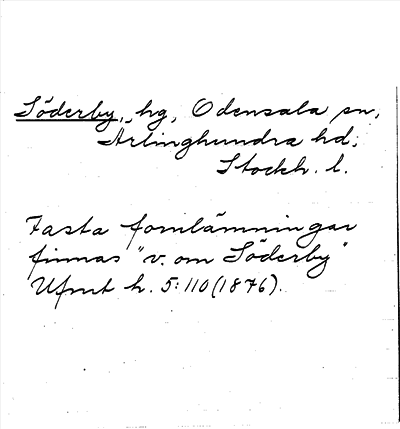 Söderby, hg, Odensala sn,
Ärlinghundra hd;
Stockh. l.
Fasta fornlämningar
finnas "v. om Söderby"
Ufmt h. 5:110 (1876).